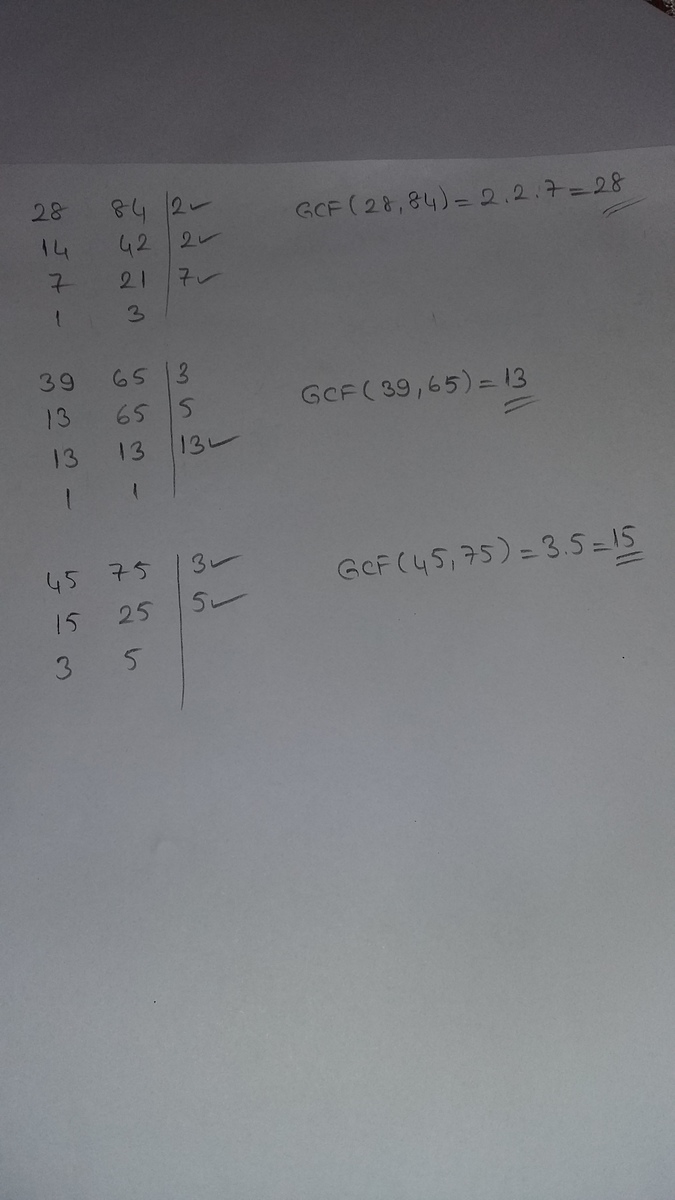 28 84 | 2✓ GCF(28,84) = 2.2.7 = 28
14 42 | 2✓
7 21 | 7✓
1 3
39 65 | 3 GCF(39,65) = 13
13 65 | 5
13 13 | 13✓
1 1
45 75 | 3✓ GCF(45,75) = 3.5 = 15
15 25 | 5✓
3 5